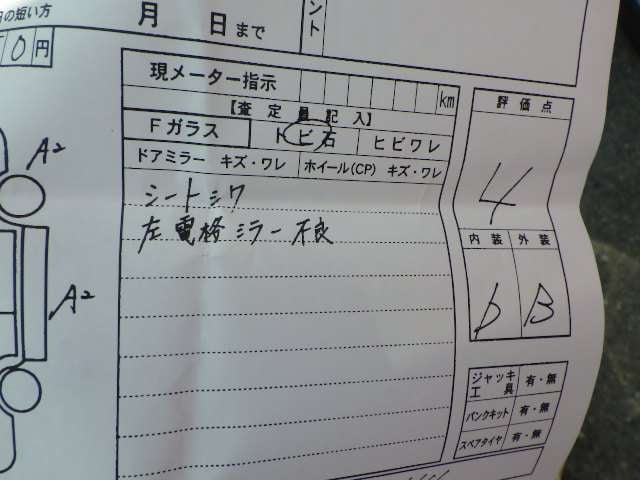 の短い方
月 日まで
ント
0円
現メーター指示 km
【査定員記入】
Fガラス トビ石 ヒビワレ
ドアミラー キズ・ワレ ホイール(CP) キズ・ワレ
シートシワ
左電格ミラー不良
評価点
4
内装 外装
b B
ジャッキ工具 有・無
パンクキット 有・無
スペアタイヤ 有・無
A2
A2